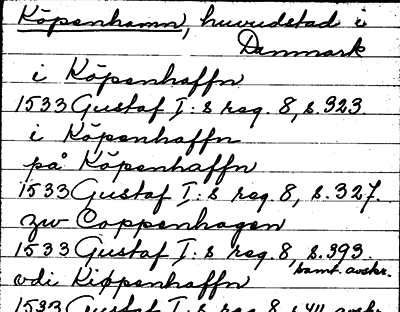 Köpenhamn, huvudstad i
Danmark
i Köpenhaffn
1533 Gustaf I:s reg. 8, s. 323.
i Köpenhaffn
på Köpenhaffn
1533 Gustaf I:s reg. 8, s. 327.
zw Coppenhagen
1533 Gustaf I:s reg. 8, s. 393.
samt. avskr.
vdi Kiøppenhaffn
1533 Gustaf I:s reg. 8 s. 411. avskr.